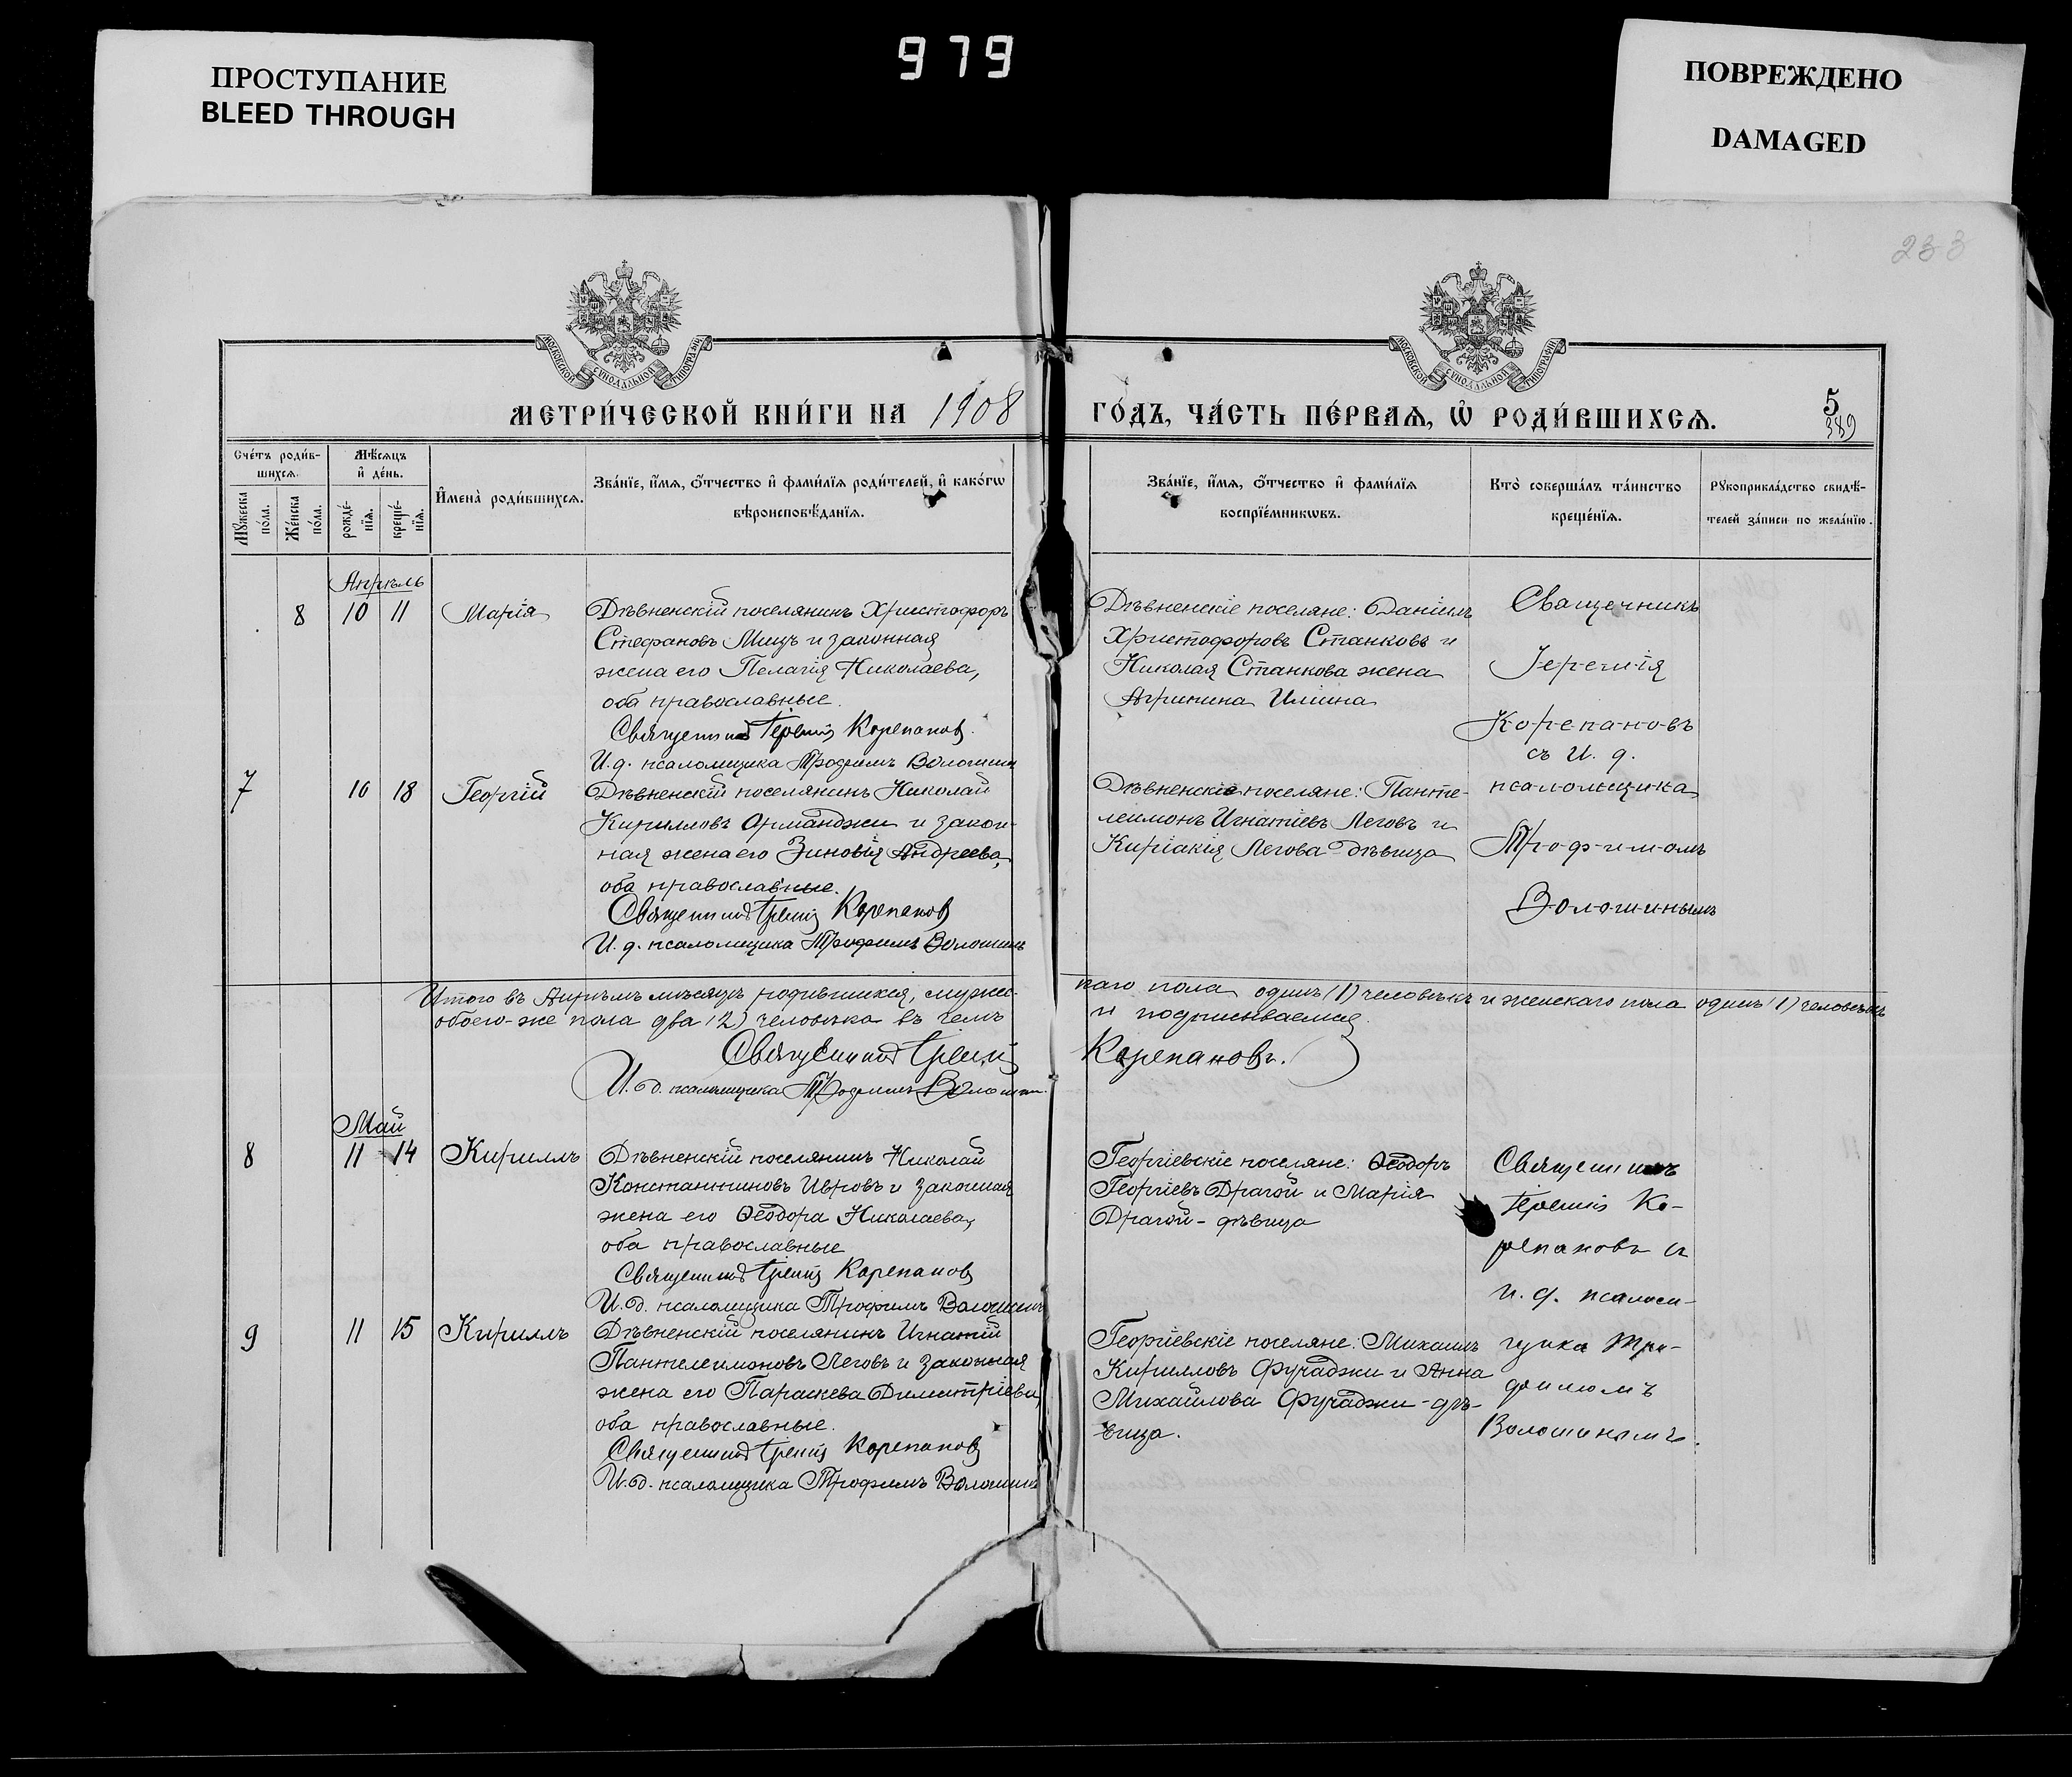 ПРОСТУПАНИЕ
BLEED THROUGH
979
ПОВРЕЖДЕНО
DAMAGED
233
МОСКОВСКОЙ СУНОДАЛЬНОЙ ТИПОГРАФІИ
МОСКОВСКОЙ СУНОДАЛЬНОЙ ТИПОГРАФІИ
МЕТРИ́ЧЕСКОЙ КНИ́ГИ НА 1908
ГО́ДЪ, ЧА́СТЬ ПЕ́РВАѦ, Ѽ РОДИ́ВШИХСѦ.
5
389
Сче́тъ роди́в-
шихсѧ.
Мꙋжеска по́ла.
Же́нска по́ла.
Мѣ́сѧцъ
и҆ де́нь.
рожде́-
нїѧ.
креще́-
нїѧ.
И҆мена̀ роди́вшихсѧ.
Зва́нїе, и҆́мѧ, ѻ҆́тчество и҆ фами́лїѧ роди́телей, и҆ како́гѡ
вѣроисповѣ́данїѧ.
Зва́нїе, и҆́мѧ, ѻ҆́тчество и҆ фами́лїѧ
воспрїе́мникѡвъ.
Кто̀ соверша́лъ та́инство
креще́нїѧ.
Рꙋкоприкла́дство свидѣ́-
телей за́писи по жела́нїю.
Апрѣль
8 10 11 Марія
Дѣвненскій поселянинъ Христофоръ
Стефановъ Мицъ и законная
жена его Пелагія Николаева,
оба православные.
Священникъ Іеремія Корепановъ.
И. д. псаломщика Трофимъ Волошинъ
Дѣвненскіе поселяне: Даніилъ
Христофоровъ Станковъ и
Николая Станкова жена
Агрипина Иліина
Священникъ
Іеремія
Корепановъ
съ И. д.
псаломщика
Трофимомъ
Волошинымъ
7 10 18 Георгій
Дѣвненскій поселянинъ Николай
Кирилловъ Арманджи и закон-
ная жена его Зиновія Андреева,
оба православные.
Священникъ Іеремія Корепановъ
И. д. псаломщика Трофимъ Волошинъ
Дѣвненскіе поселяне: Панте-
леимонъ Игнатіевъ Леговъ и
Киріакія Легова дѣвица
Итого въ Апрѣлѣ мѣсяцѣ родившихся, мужес-
каго пола одинъ (1) человѣкъ и женскаго пола одинъ (1) человѣкъ
обоего-же пола два (2) человѣка въ чемъ
и подписываемся
Священникъ Іеремія
Корепановъ.
И. д. псаломщика Трофимъ Волошинъ.
Май
8 11 14 Кириллъ
Дѣвненскій поселянинъ Николай
Константиновъ Ивровъ и законная
жена его Ѳеодора Николаева,
оба православные
Священникъ Іеремія Корепановъ
И. д. псаломщика Трофимъ Волошинъ
Георгіевскіе поселяне: Ѳеодоръ
Георгіевъ Драгой и Марія
Драгой - дѣвица
Священникъ
Іеремія Ко-
репановъ и
и. д. псалом-
щика Тро-
фимомъ
Волошинымъ.
9 11 15 Кириллъ
Дѣвненскій поселянинъ Игнатій
Пантелеимоновъ Леговъ и законная
жена его Параскева Димитріева,
оба православные.
Священникъ Іеремія Корепановъ
И. д. псаломщика Трофимъ Волошинъ
Георгіевскіе поселяне: Михаилъ
Кирилловъ Фучаджи и Анна
Михайлова Фучаджи - дѣ-
вица.